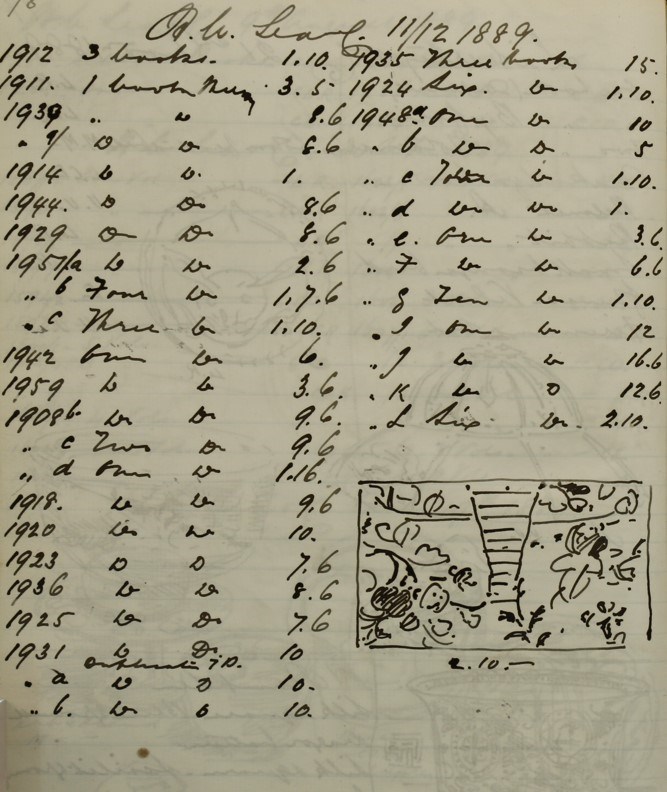 11/12 1889.
1912 3 books. 1.10.
1911. 1 book 3.5
1939 " do 8.6
" do do 8.6
1914 do do 1.
1944. do do 8.6
1929 do do 8.6
1951/a do do 2.6
" b Four do 1.7.6
" c Three do 1.10.
1942 One do 6.
1959 do do 3.6.
1908b. do do 9.6.
" c Two do 9.6
" d One do 1.16.
1918. do do 9.6
1920 do do 10.
1923 do do 7.6
1936 do do 8.6
1925 do do 7.6
1931 do do 10
" a do do 10.
" b. do do 10.
1935 Three books 15.
1924 Six. do 1.10.
1948a One do 10
" b do do 5
" c do 1.10.
" d do do 1.
" e. One do 3.6.
" F do do 6.6
" g Ten do 1.10.
" I One do 12
" J do do 16.6
" K do do 12.6
" L Six do. 2.10.
2.10.–